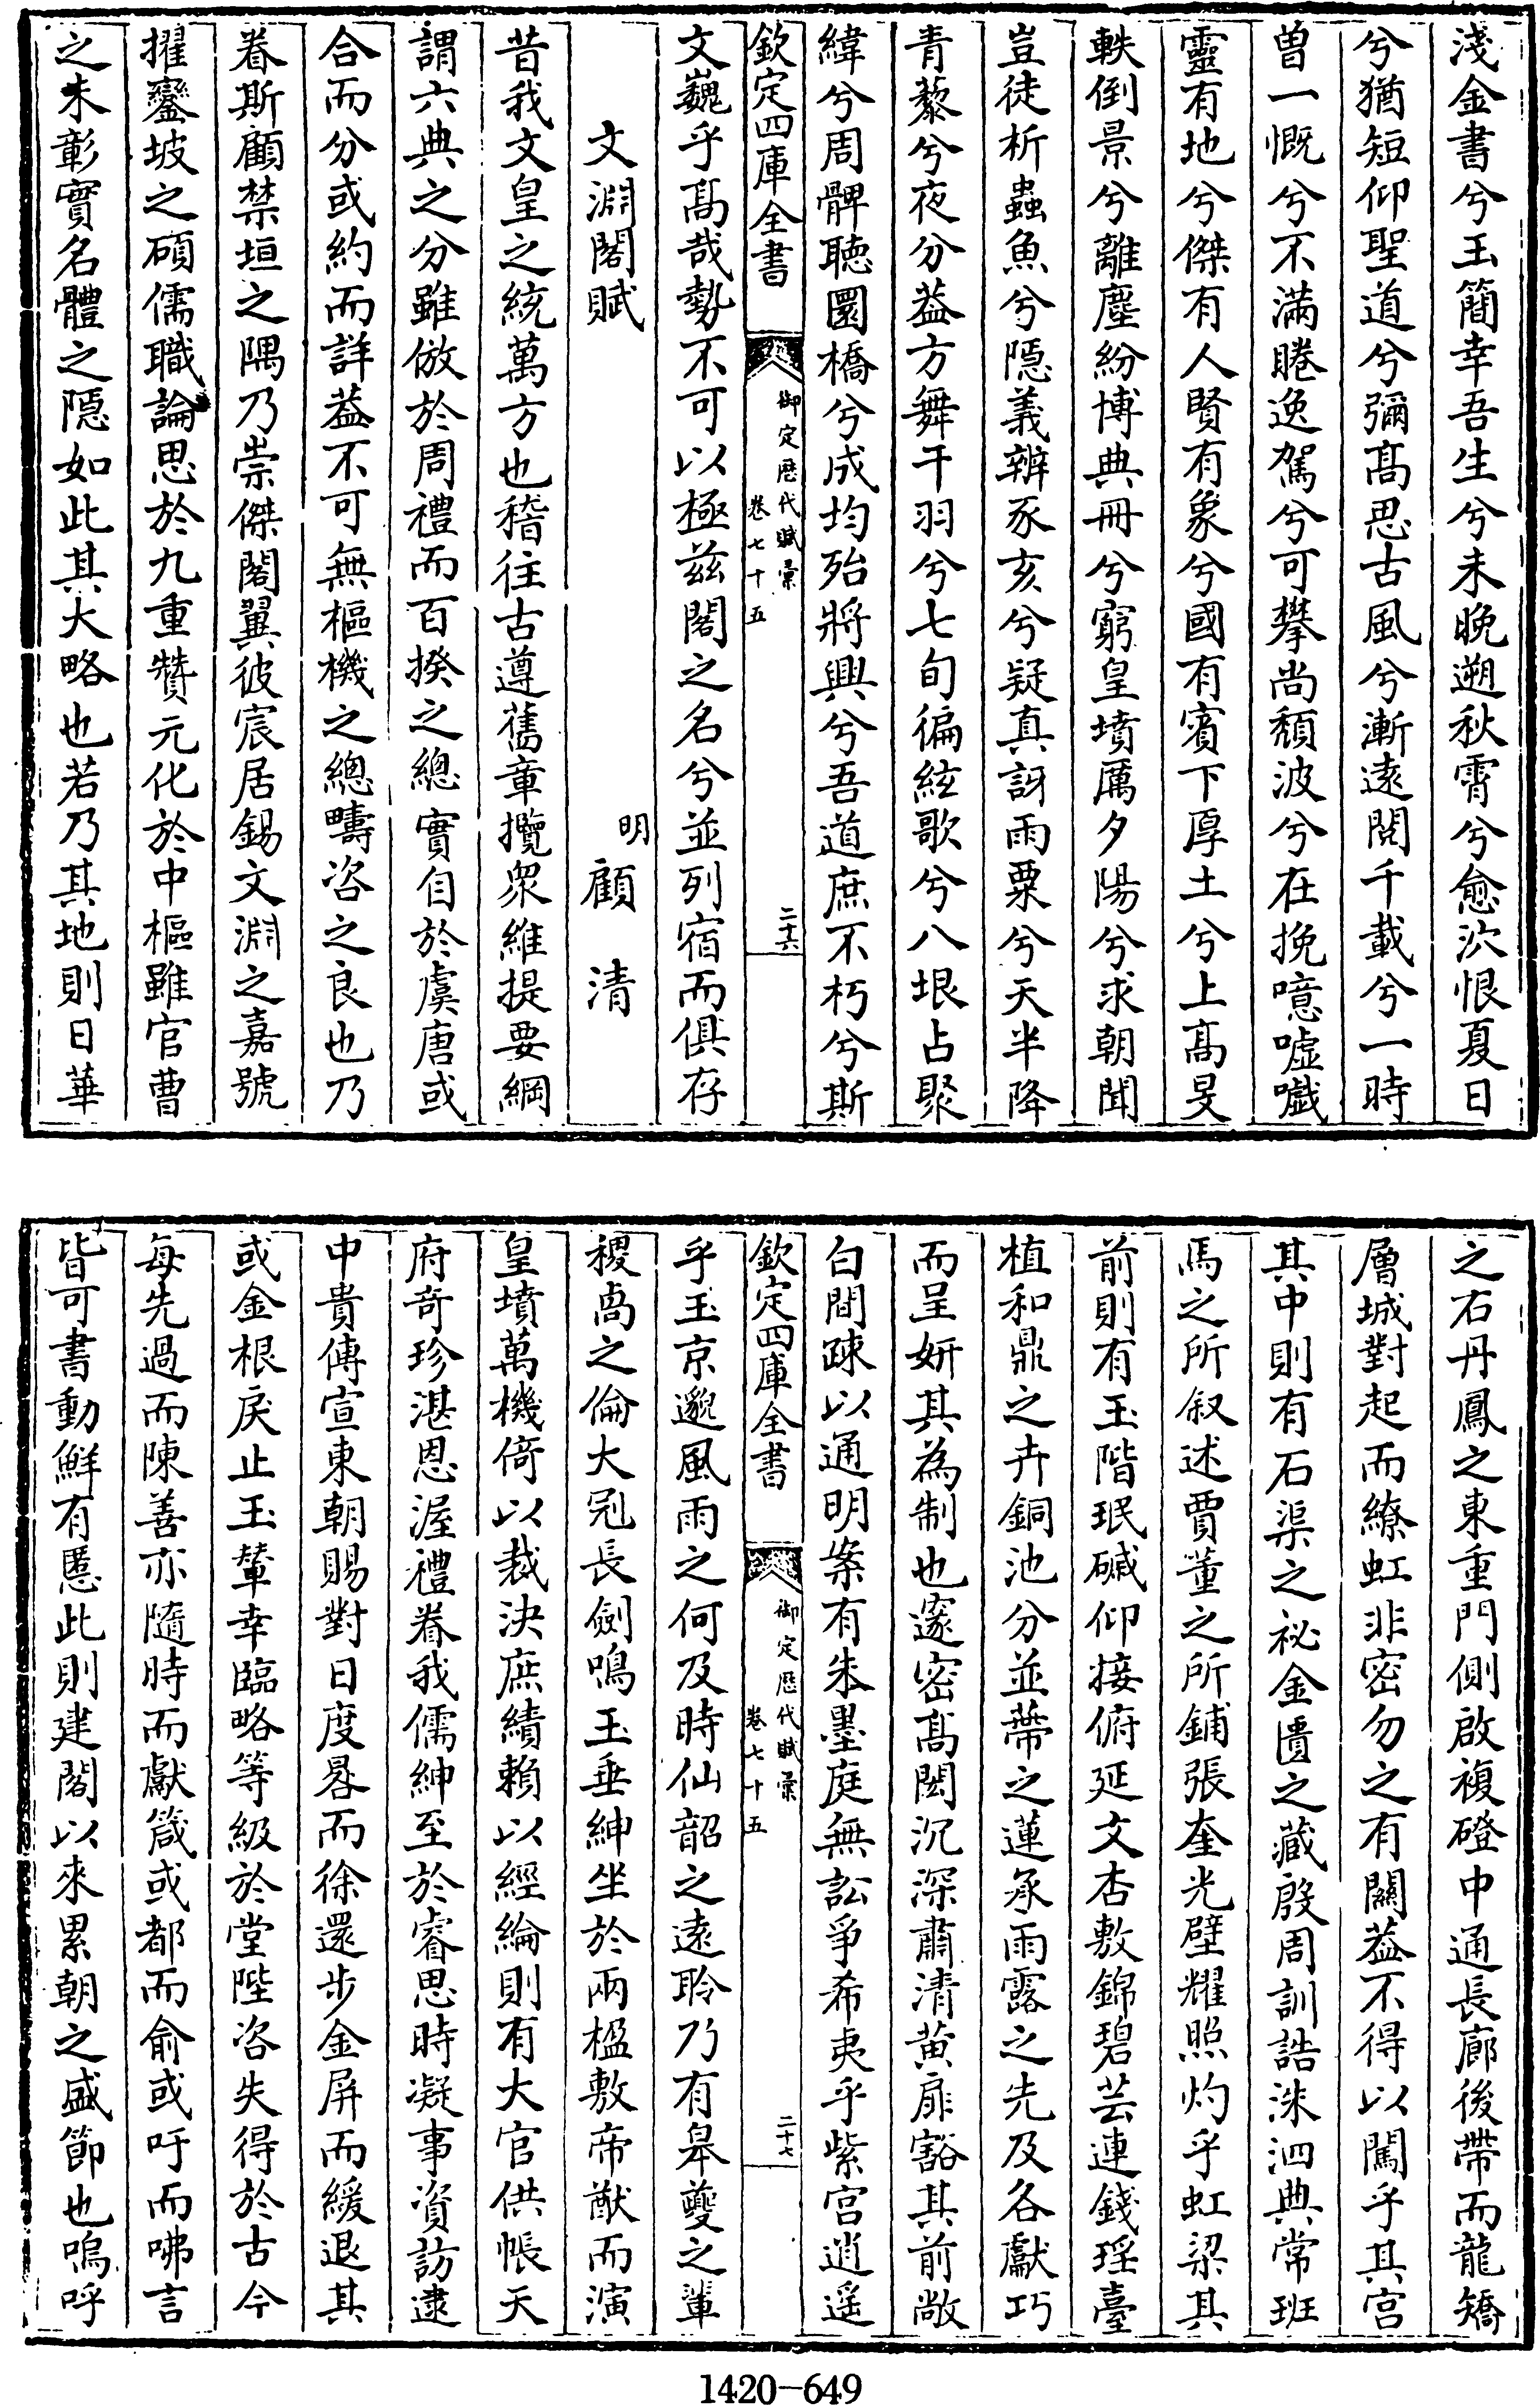 淺金書兮玉簡幸吾生兮未晚遡秋霄兮愈泬恨夏日
兮猶短仰聖道兮彌髙思古風兮漸遠閱千載兮一時
曽一慨兮不滿睠逸駕兮可攀尚頽波兮在挽噫嘘嚱
靈有地兮傑有人賢有象兮國有賓下厚土兮上髙旻
軼倒景兮離塵紛博典冊兮窮皇墳厲夕陽兮求朝聞
豈徒析蟲魚兮隠義辨豕亥兮疑真訝雨粟兮天半降
青藜兮夜分葢方舞干羽兮七旬徧絃歌兮八垠占聚
緯兮周髀聽圜橋兮成均殆將興兮吾道庶不朽兮斯
欽定四庫全書
御定歴代賦彙
卷七十五
二十六
文巍乎髙哉勢不可以極兹閣之名兮並列宿而俱存
文淵閣賦
明
顧清
昔我文皇之統萬方也稽往古遵舊章攬衆維提要綱
謂六典之分雖倣於周禮而百揆之總實自於虞唐或
合而分或約而詳葢不可無樞機之總疇咨之良也乃
眷斯顧禁垣之隅乃崇傑閣翼彼宸居錫文淵之嘉號
擢鑾坡之碩儒職論思於九重贊元化於中樞雖官曹
之未彰實名體之隠如此其大略也若乃其地則日華
之右丹鳳之東重門側啟複磴中通長廊後帶而龍矯
層城對起而繚虹非密勿之有關葢不得以闖乎其宫
其中則有石渠之祕金匱之藏殷周訓誥洙泗典常班
馬之所叙述賈董之所鋪張奎光壁耀照灼乎虹梁其
前則有玉階珉碱仰接俯延文杏敷錦碧芸連錢瑶臺
植和鼎之卉銅池分並蔕之蓮承雨露之先及各獻巧
而呈妍其為制也邃密髙閎沉深肅清黄扉豁其前敞
白間踈以通明案有朱墨庭無訟爭希夷乎紫宫逍遥
欽定四庫全書
御定歴代賦彙
卷七十五
二十七
乎玉京邈風雨之何及時仙韶之遠聆乃有皋夔之輩
稷卨之倫大冠長劍鳴玉垂紳坐於兩楹敷帝猷而演
皇墳萬機倚以裁決庶績賴以經綸則有大官供帳天
府竒珍湛恩渥禮眷我儒紳至於睿思時凝事資訪逮
中貴傳宣東朝賜對日度晷而徐還步金屏而緩退其
或金根戾止玉輦幸臨略等級於堂陛咨失得於古今
每先過而陳善亦隨時而獻箴或都而俞或吁而咈言
皆可書動鮮有慝此則建閣以來累朝之盛節也嗚呼
1420-649